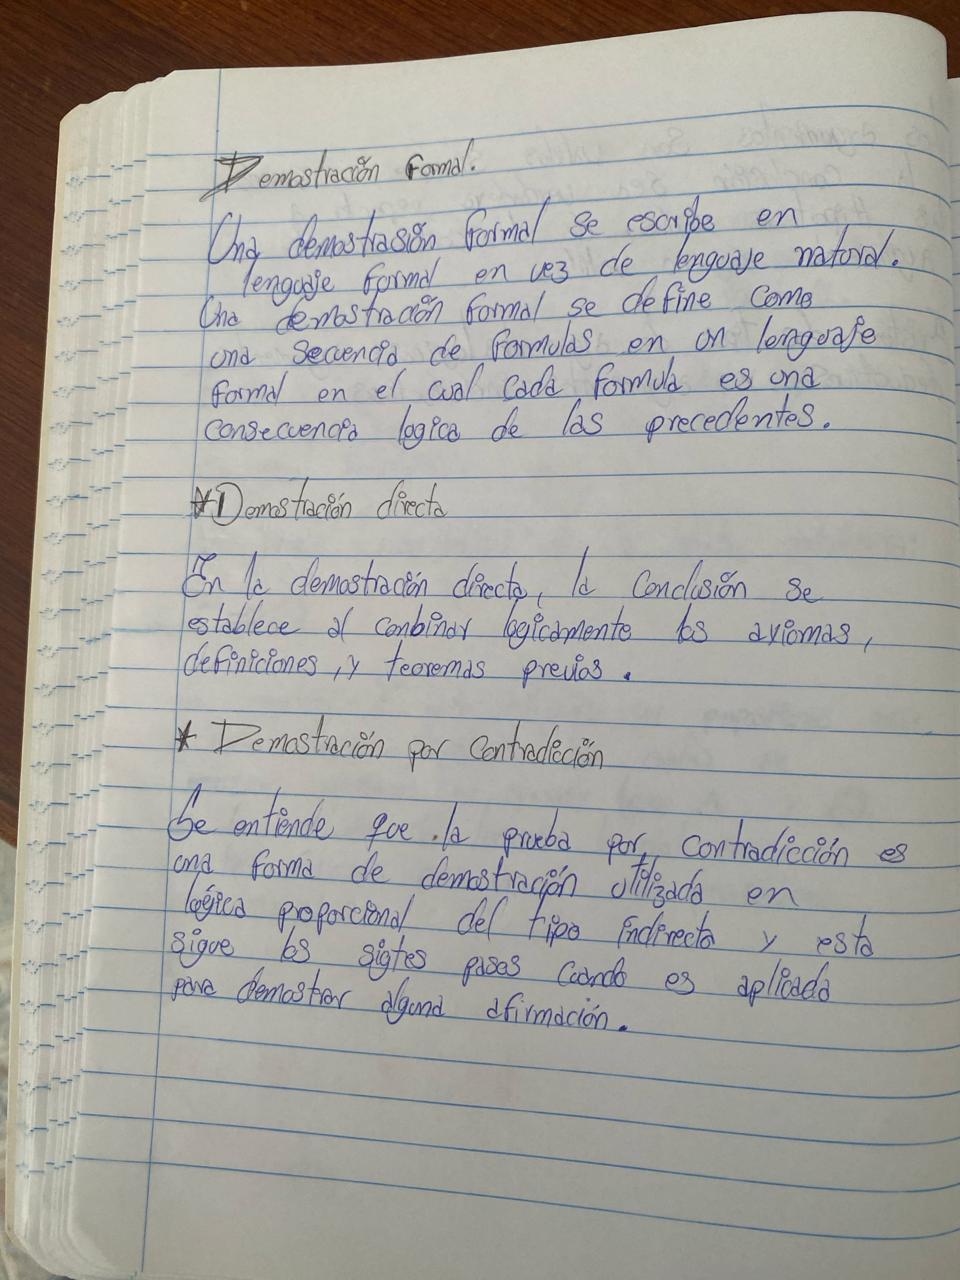 Demostración formal.
Una demostrasión formal se escribe en
lenguaje formal en vez de lenguaje natural.
Una demostración formal se define como
una secuencia de formulas en un lenguaje
formal en el cual cada formula es una
consecuencia logica de las precedentes.
*Demostración directa
En la demostración directa, la conclusión se
establece al conbinar logicamente los axiomas,
definiciones, y teoremas previos.
* Demostración por contradicción
Se entiende que la prueba por contradicción es
una forma de demostración utilizada en
lógica proporcional del tipo indirecta y esta
sigue los sigtes pasos cuando es aplicada
para demostrar alguna afirmación.